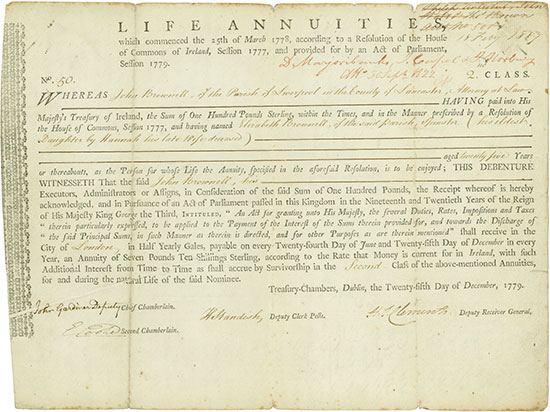 LIFE ANNUITIES,
which commenced the 25th of March 1778, according to a Resolution of the House
of Commons of Ireland, Session 1777, and provided for by an Act of Parliament,
Session 1779.
No. 50.
2. CLASS.
WHEREAS John Brownell, of the Parish of Liverpool in the County of Lancaster, Attorney at Law
HAVING paid into His
Majesty's Treasury of Ireland, the Sum of One Hundred Pounds Sterling, within the Times, and in the Manner prescribed by a Resolution of
the House of Commons, Session 1777, and having named Elizabeth Brownell, of the said Parish, Spinster (his eldest
Daughter by Hannah his late Wife deceased)
aged twenty five Years
or thereabouts, as the Person for whose Life the Annuity, specified in the aforesaid Resolution, is to be enjoyed; THIS DEBENTURE
WITNESSETH That the said John Brownell, his
Executors, Administrators or Assigns, in Consideration of the said Sum of One Hundred Pounds, the Receipt whereof is hereby
acknowledged, and in Pursuance of an Act of Parliament passed in this Kingdom in the Nineteenth and Twentieth Years of the Reign
of His Majesty King George the Third, INTITULED, "An Act for granting unto His Majesty, the several Duties, Rates, Impositions and Taxes
"therein particularly expressed, to be applied to the Payment of the Interest of the Sums therein provided for, and towards the Discharge of
"the said Principal Sums, in such Manner as therein is directed, and for other Purposes as are therein mentioned" shall receive in the
City of London in Half Yearly Gales, payable on every Twenty-fourth Day of June and Twenty-fifth Day of December in every
Year, an Annuity of Seven Pounds Ten Shillings Sterling, according to the Rate that Money is current for in Ireland, with such
Additional Interest from Time to Time as shall accrue by Survivorship in the Second Class of the above-mentioned Annuities,
for and during the natural Life of the said Nominee.
Treasury-Chambers, Dublin, the Twenty-fifth Day of December, 1779.
John Gardiner Deputy Chief Chamberlain.
Second Chamberlain.
H. Standish, Deputy Clerk Pells.
H. T. Clements Deputy Receiver General.